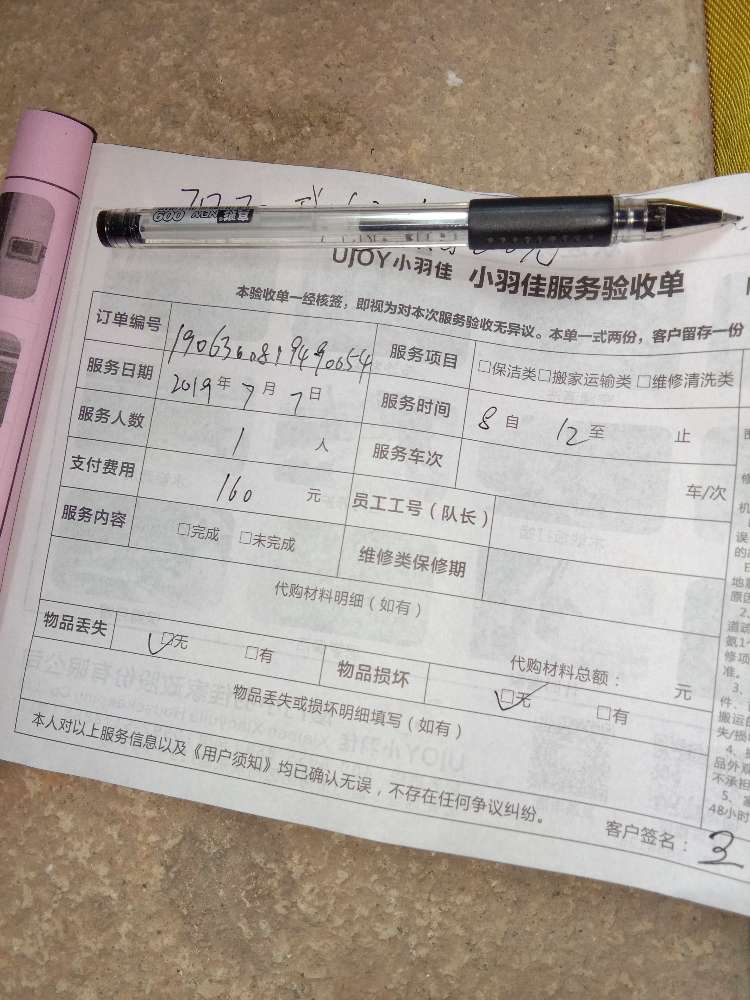 UJOY小羽佳 小羽佳服务验收单
本验收单一经核签，即视为对本次服务验收无异议。本单一式两份，客户留存一份
订单编号 服务项目 □保洁类□搬家运输类 □维修清洗类
服务日期 2019年7月7日 服务时间 8自 12至 止
服务人数 1 人 服务车次 车/次
支付费用 160 元 员工工号（队长）
服务内容 □完成 □未完成 维修类保修期
代购材料明细（如有）
代购材料总额： 元
物品丢失 ☑无 □有 物品损坏 ☑无 □有
物品丢失或损坏明细填写（如有）
本人对以上服务信息以及《用户须知》均已确认无误，不存在任何争议纠纷。
客户签名：